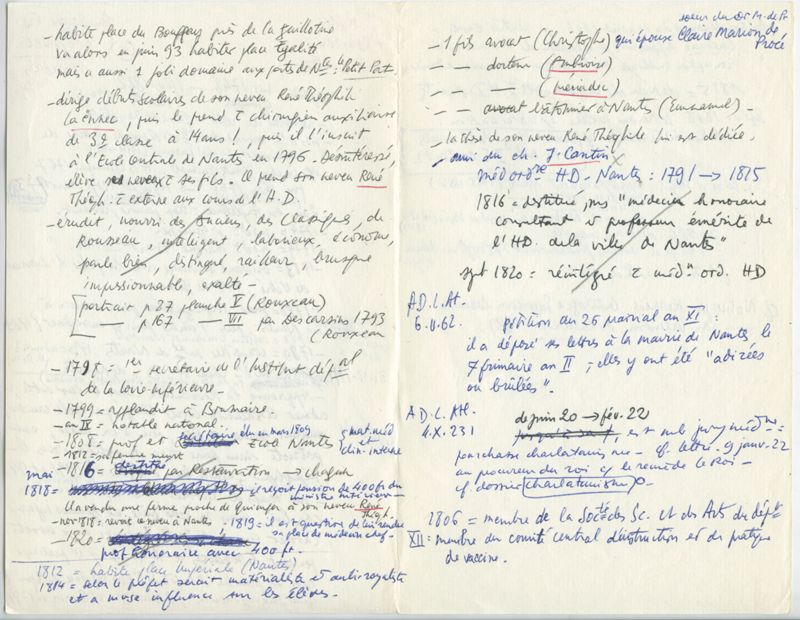 - habite place du Bouffay près de la guillotine
va alors en juin 93 habiter place Egalité
mais a aussi 1 joli domaine aux portes de Ntes le Petit Port
- dirige débuts scolaires de son neveu René Théophile
Laënnec, puis le prend τ chirurgien auxiliaire
de 3e classe à 14 ans !, puis il l'inscrit
à l'Ecole Centrale de Nantes en 1796. Désintéressé,
élève ses neveux τ ses fils. Il prend son neveu René
Théoph. τ externe aux cours de l'H.D
- érudit, nourri des Anciens, des Classiques, de
Rousseau, intelligent, laborieux, économe,
parle bien, distingué, railleur, brusque
impressionnable, exalté -
portrait p 27 planche V (Rouxeau)
— p 167 — VII par Descarsins 1793
(Rouxeau
- 1798 = 1er secrétaire de l'Institut dépal
de la Loire-Inférieure.
- 1799 = applaudit à Brumaire.
- an IX = notable national.
- 1808 = prof et Ecole Nantes
élu en mars 1809
mat. méd
et
clin. interne
- 1812 = sa femme meurt
mai - 1816 = destitué par Restauration → chagrin
1818 = il reçoit pension de 400 fr du
ministre intérieur
Il a vendu une ferme proche de Quimper à son neveu René
Théoph.
- nov 1818 : revoit ce neveu à Nantes, 1819 = il est question de lui rendre
sa place de médecin chef.
- 1820 =
prof honoraire avec 400 fr.
1812 = habite place Impériale (Nantes)
1814 = selon le préfet serait matérialiste et anti-royaliste
et a mvse influence sur les élèves.
soeur du Dr M. de Pr
- 1 fils avocat (Christophe) qui épouse Claire Marion de
Procé
- — docteur (Ambroise)
- — — (Mériadec)
- — avocat bâtonnier à Nantes (Emmanuel) -
- la thèse de son neveu René Théophile lui est dédiée.
- ami du ch. J. Cantin
méd ordre HD - Nantes : 1791 → 1815
1816 = destitué, ms "médecin honoraire
consultant et professeur émérite de
l'HD. de la ville de Nantes"
sept 1820 = réintégré τ médn ord. HD
A.D.L.At.
6.U.62. pétition du 25 prairial an XI
il a déposé ses lettres à la mairie de Nantes le
7 frimaire an II ; elles y ont été "adirées
ou brûlées".
A.D.L.At.
4.X.231 de juin 20 → fév. 22
, est mb jury médn.
pourchasse charlatanisme - cf. lettre 9 janv. 22
au procureur du roi
cf. dossier charlatanisme
1806 = membre de la Socté des Sc. et des Arts du dépt
XII = membre du comité central d'instruction et de pratique
de vaccine.